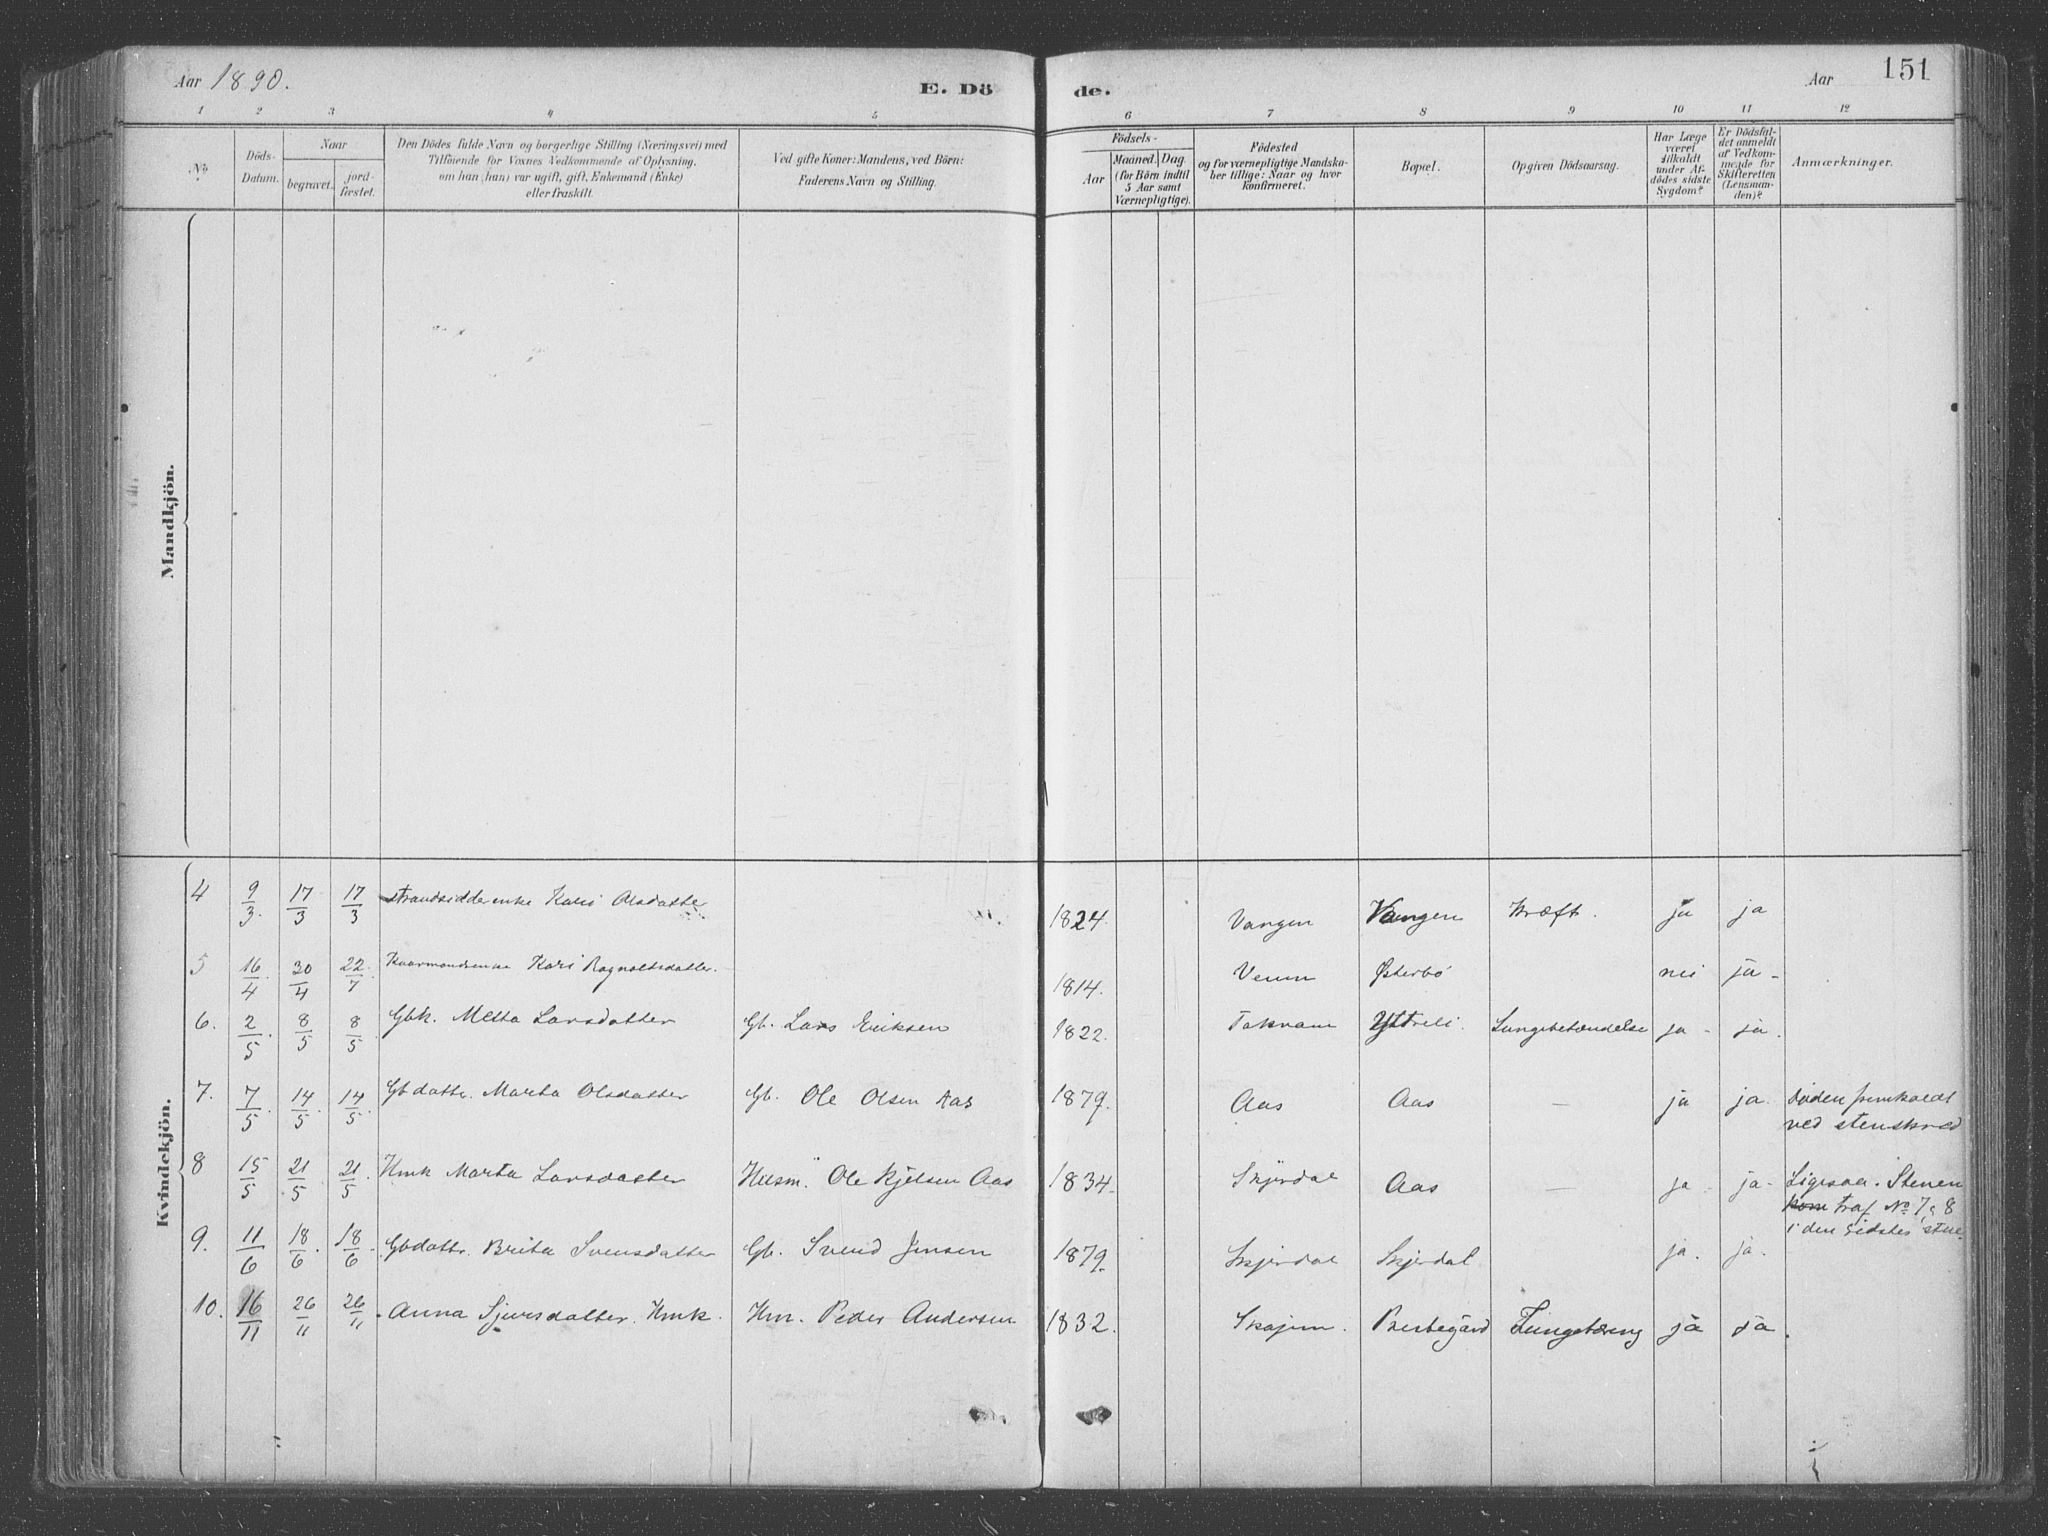 Aar 1890.
E. Dö
de.
Aar
151
1 2 3 4 5 6 7 8 9 10 11 12
No.
Döds-
Datum.
Naar
begravet.
jord-
fæstet.
Den Dödes fulde Navn og borgerlige Stilling (Næringsvei) med
Tilföiende for Voxnes Vedkommende af Oplysning,
om han (hun) var ugift, gift, Enkemand (Enke)
eller fraskilt.
Ved gifte Koner: Mandens, ved Börn:
Faderens Navn og Stilling.
Födsels-
Aar
Maaned. Dag.
(for Börn indtil
5 Aar samt
Værnepligtige).
Födested
og for værnepligtige Mandska-
ber tillige: Naar og hvor
konfirmeret.
Bopæl.
Opgiven Dödsaarsag.
Har Læge
været
tilkaldt
under Af-
dödes sidste
Sygdom?
Er Dödsfal-
det anmeldt
af Vedkom-
mende for
Skifteretten
(Lensman-
den)?
Anmærkninger.
Mandkjön.
Kvindekjön.
4 9/3. 17/3 17/3 Strandsidderenke Kari Olsdatter 1824. Vangen Vangen Kræft. ja ja
5 16/4. 30/4 22/7. Kaarmandsenke Kari Ragnvaldsdatter. 1814. Østerbö nei ja -
6. 2/5. 8/5 8/5 Gbk. Metta Larsdatter Gb. Lars Eriksen 1822. Toknam Yttreli. Lungebetændelse ja - ja.
7. 7/5. 14/5. 14/5. Gbdattr. Marta Olsdatter Gb. Ole Olsen Aas 1879. Aas Aas — ja ja. Döden fremkaldt
ved stenskred
8 15/5 21/5 21/5. Hmk Marta Larsdatter Husm. Ole Kjelsen Aas 1834. Skjerdal Aas — ja - ja - Ligesaa. Stenen
kom traf No 7 & 8
i den sidstes stue.
9. 11/6 18/6. 18/6 Gbdattr. Brita Svensdatter Gb. Svend Jensen 1879. Skjerdal Skjerdal ja. ja.
10. 16/11 26/11 26/11. Anna Sjursdatter. Hmk. Hm. Peder Andersen 1832. Skajem. Berbegård Lungetæring ja ja.